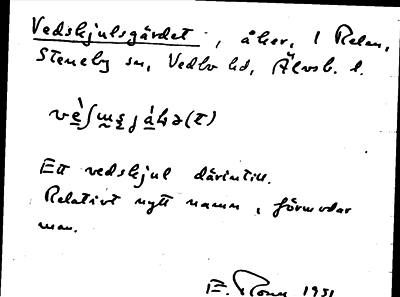 Vedskjulsgärdet, åker, i Relan,
Steneby sn, Vedbo hd, Älvsb. l.
Ett vedskjul därintill.
Relativt nytt namn, förmodar
man.
E. 1931